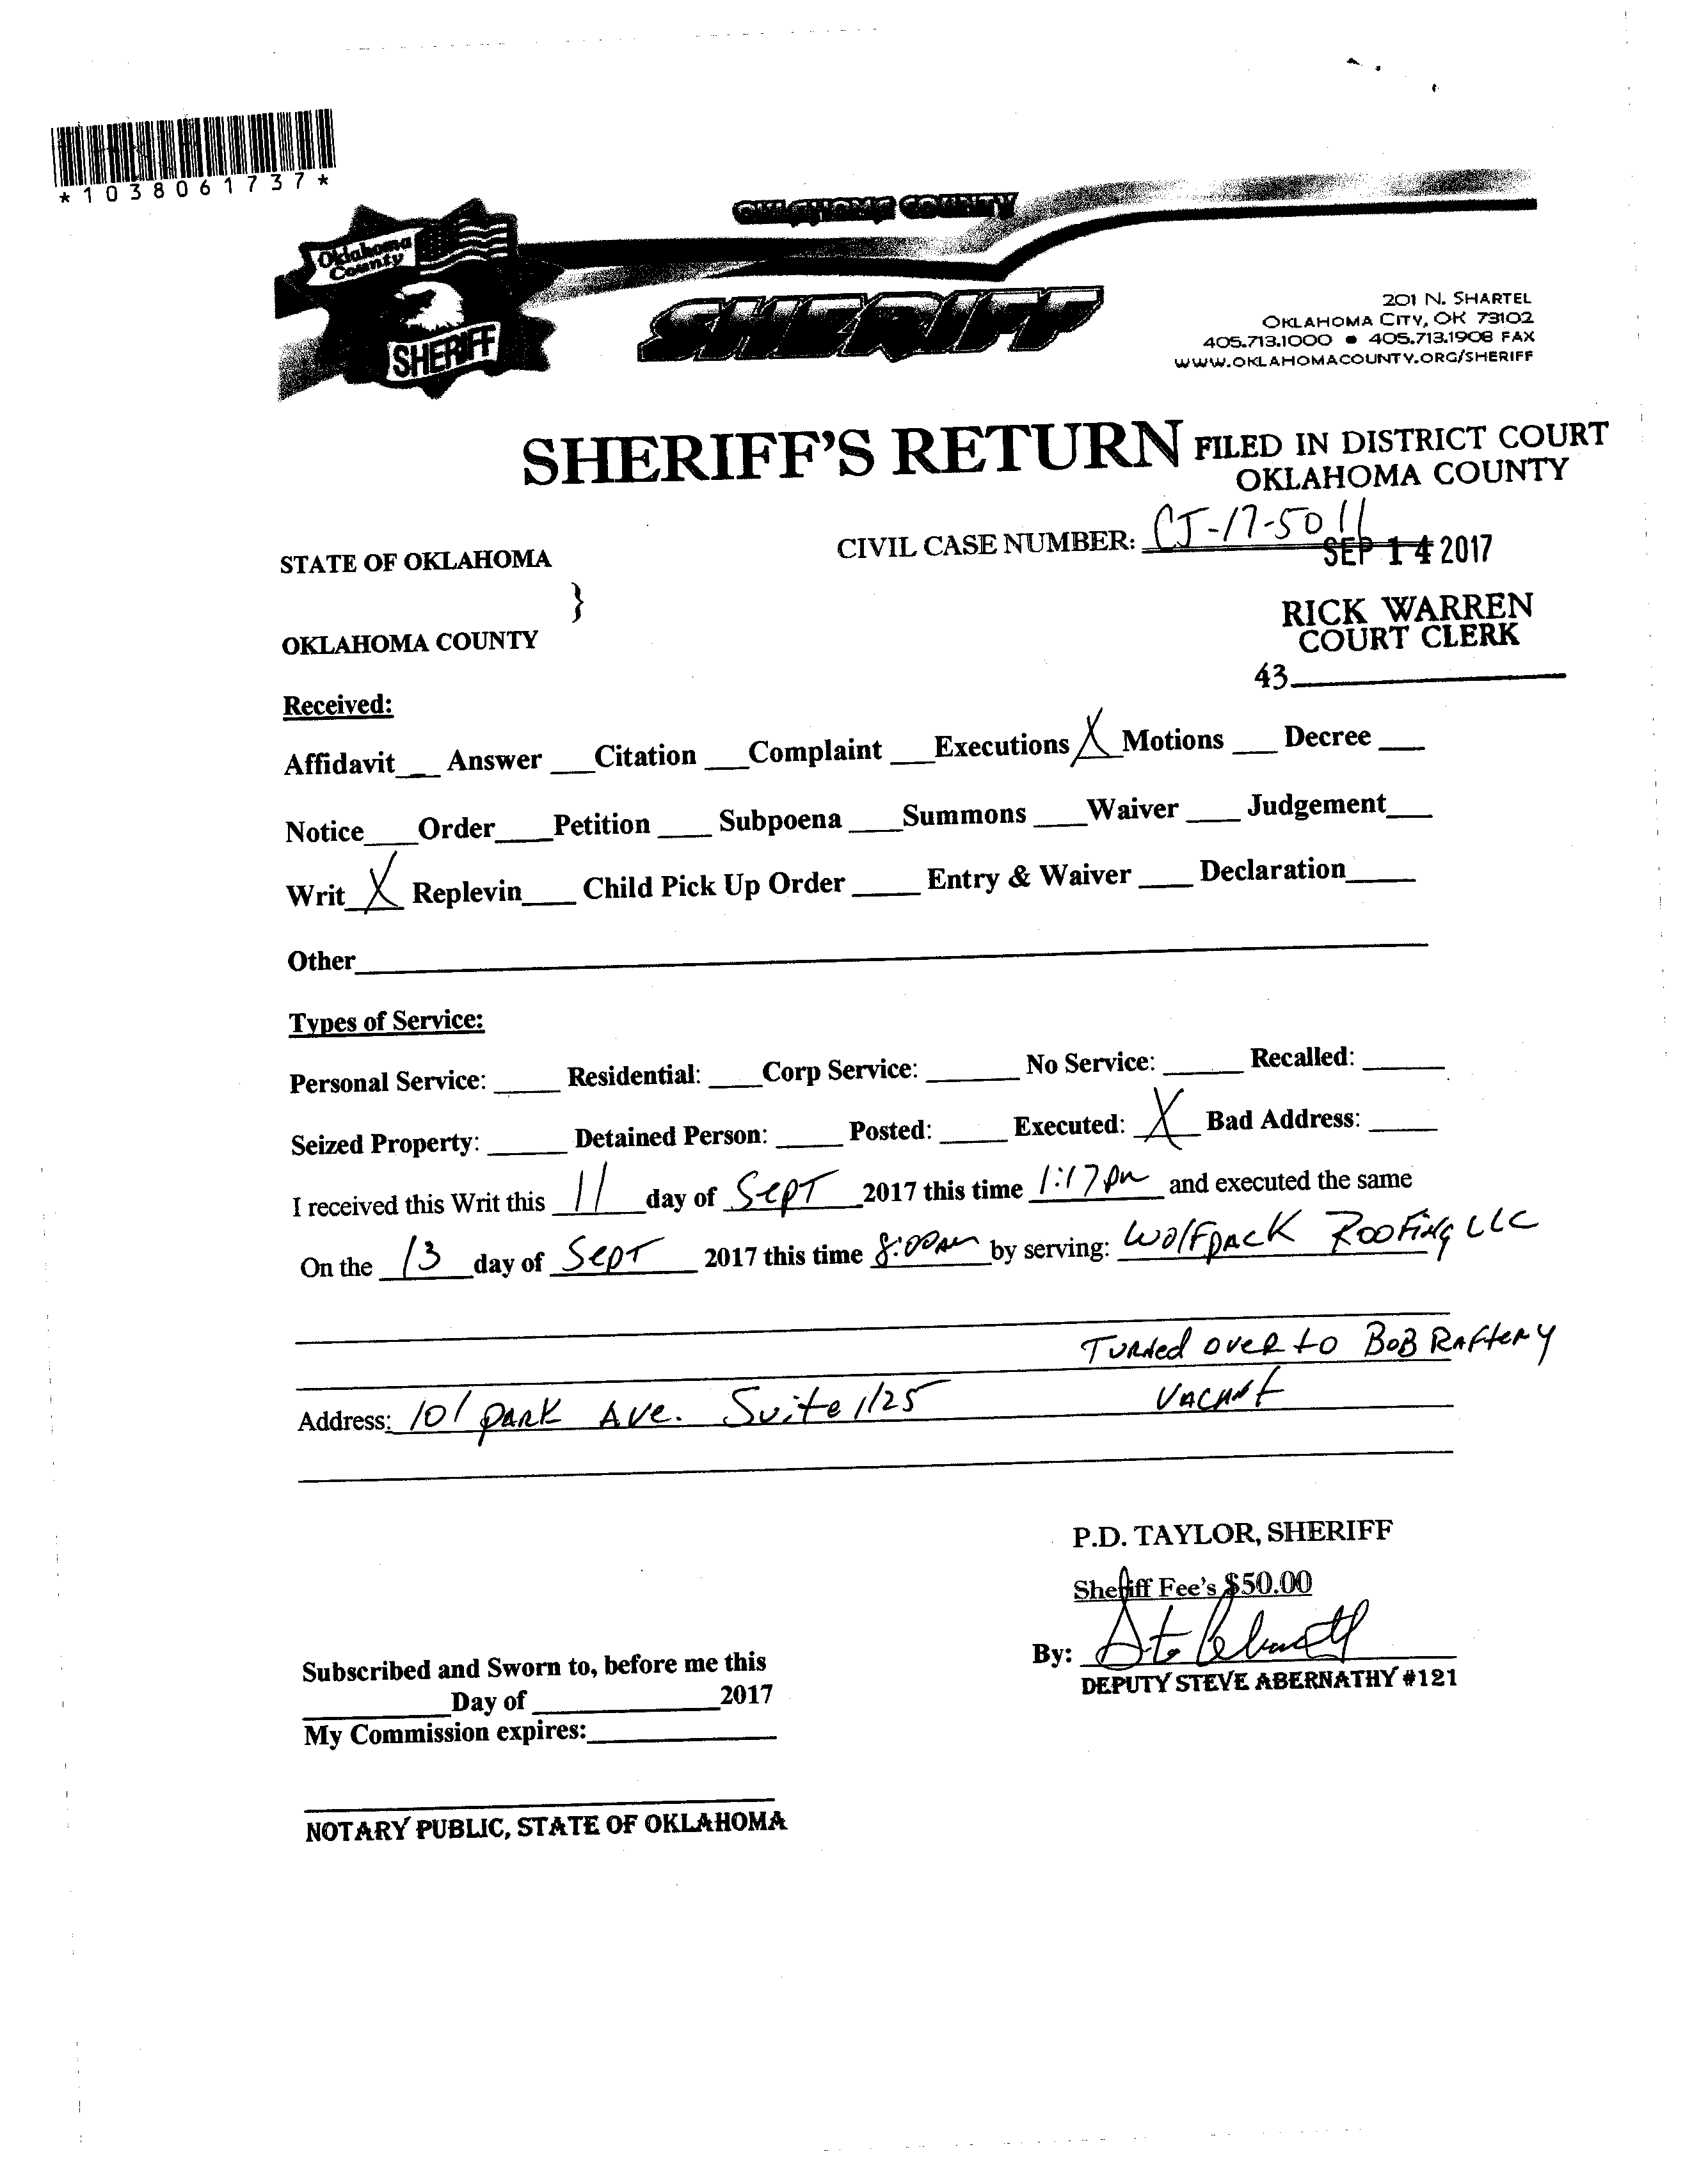 *1038061737*
OKLAHOMA COUNTY
Oklahoma
County
SHERIFF
SHERIFF
201 N. SHARTEL
OKLAHOMA CITY, OK 73102
405.713.1000 ● 405.713.1908 FAX
WWW.OKLAHOMACOUNTY.ORG/SHERIFF
SHERIFF'S RETURN FILED IN DISTRICT COURT
OKLAHOMA COUNTY
CIVIL CASE NUMBER: CJ-17-5011
SEP 14 2017
STATE OF OKLAHOMA
}
RICK WARREN
COURT CLERK
OKLAHOMA COUNTY
43____
Received:
Affidavit___ Answer ___Citation ___Complaint ___Executions X Motions ___ Decree ___
Notice___Order___Petition ___ Subpoena ___Summons ___Waiver ___ Judgement___
Writ X Replevin___ Child Pick Up Order ____ Entry & Waiver ___ Declaration____
Other____
Types of Service:
Personal Service: ____ Residential: ___Corp Service: _____ No Service: ____ Recalled: ____
Seized Property: ____ Detained Person: ___ Posted: ____ Executed: X Bad Address: ____
I received this Writ this 11 day of Sept 2017 this time 1:17pm and executed the same
On the 13 day of Sept 2017 this time 8:00AM by serving: WolfpACK RooFing LLC
Turned over to BoB RAfteRy
Address: 101 pARK Ave. Suite 1125 VACANt
P.D. TAYLOR, SHERIFF
Sheriff Fee's $50.00
By:
DEPUTY STEVE ABERNATHY #121
Subscribed and Sworn to, before me this
____Day of ____2017
My Commission expires:____
NOTARY PUBLIC, STATE OF OKLAHOMA